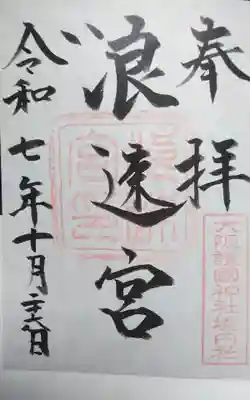 奉拝
浪速宮
大阪護國神社境内社
令和七年十月二十六日